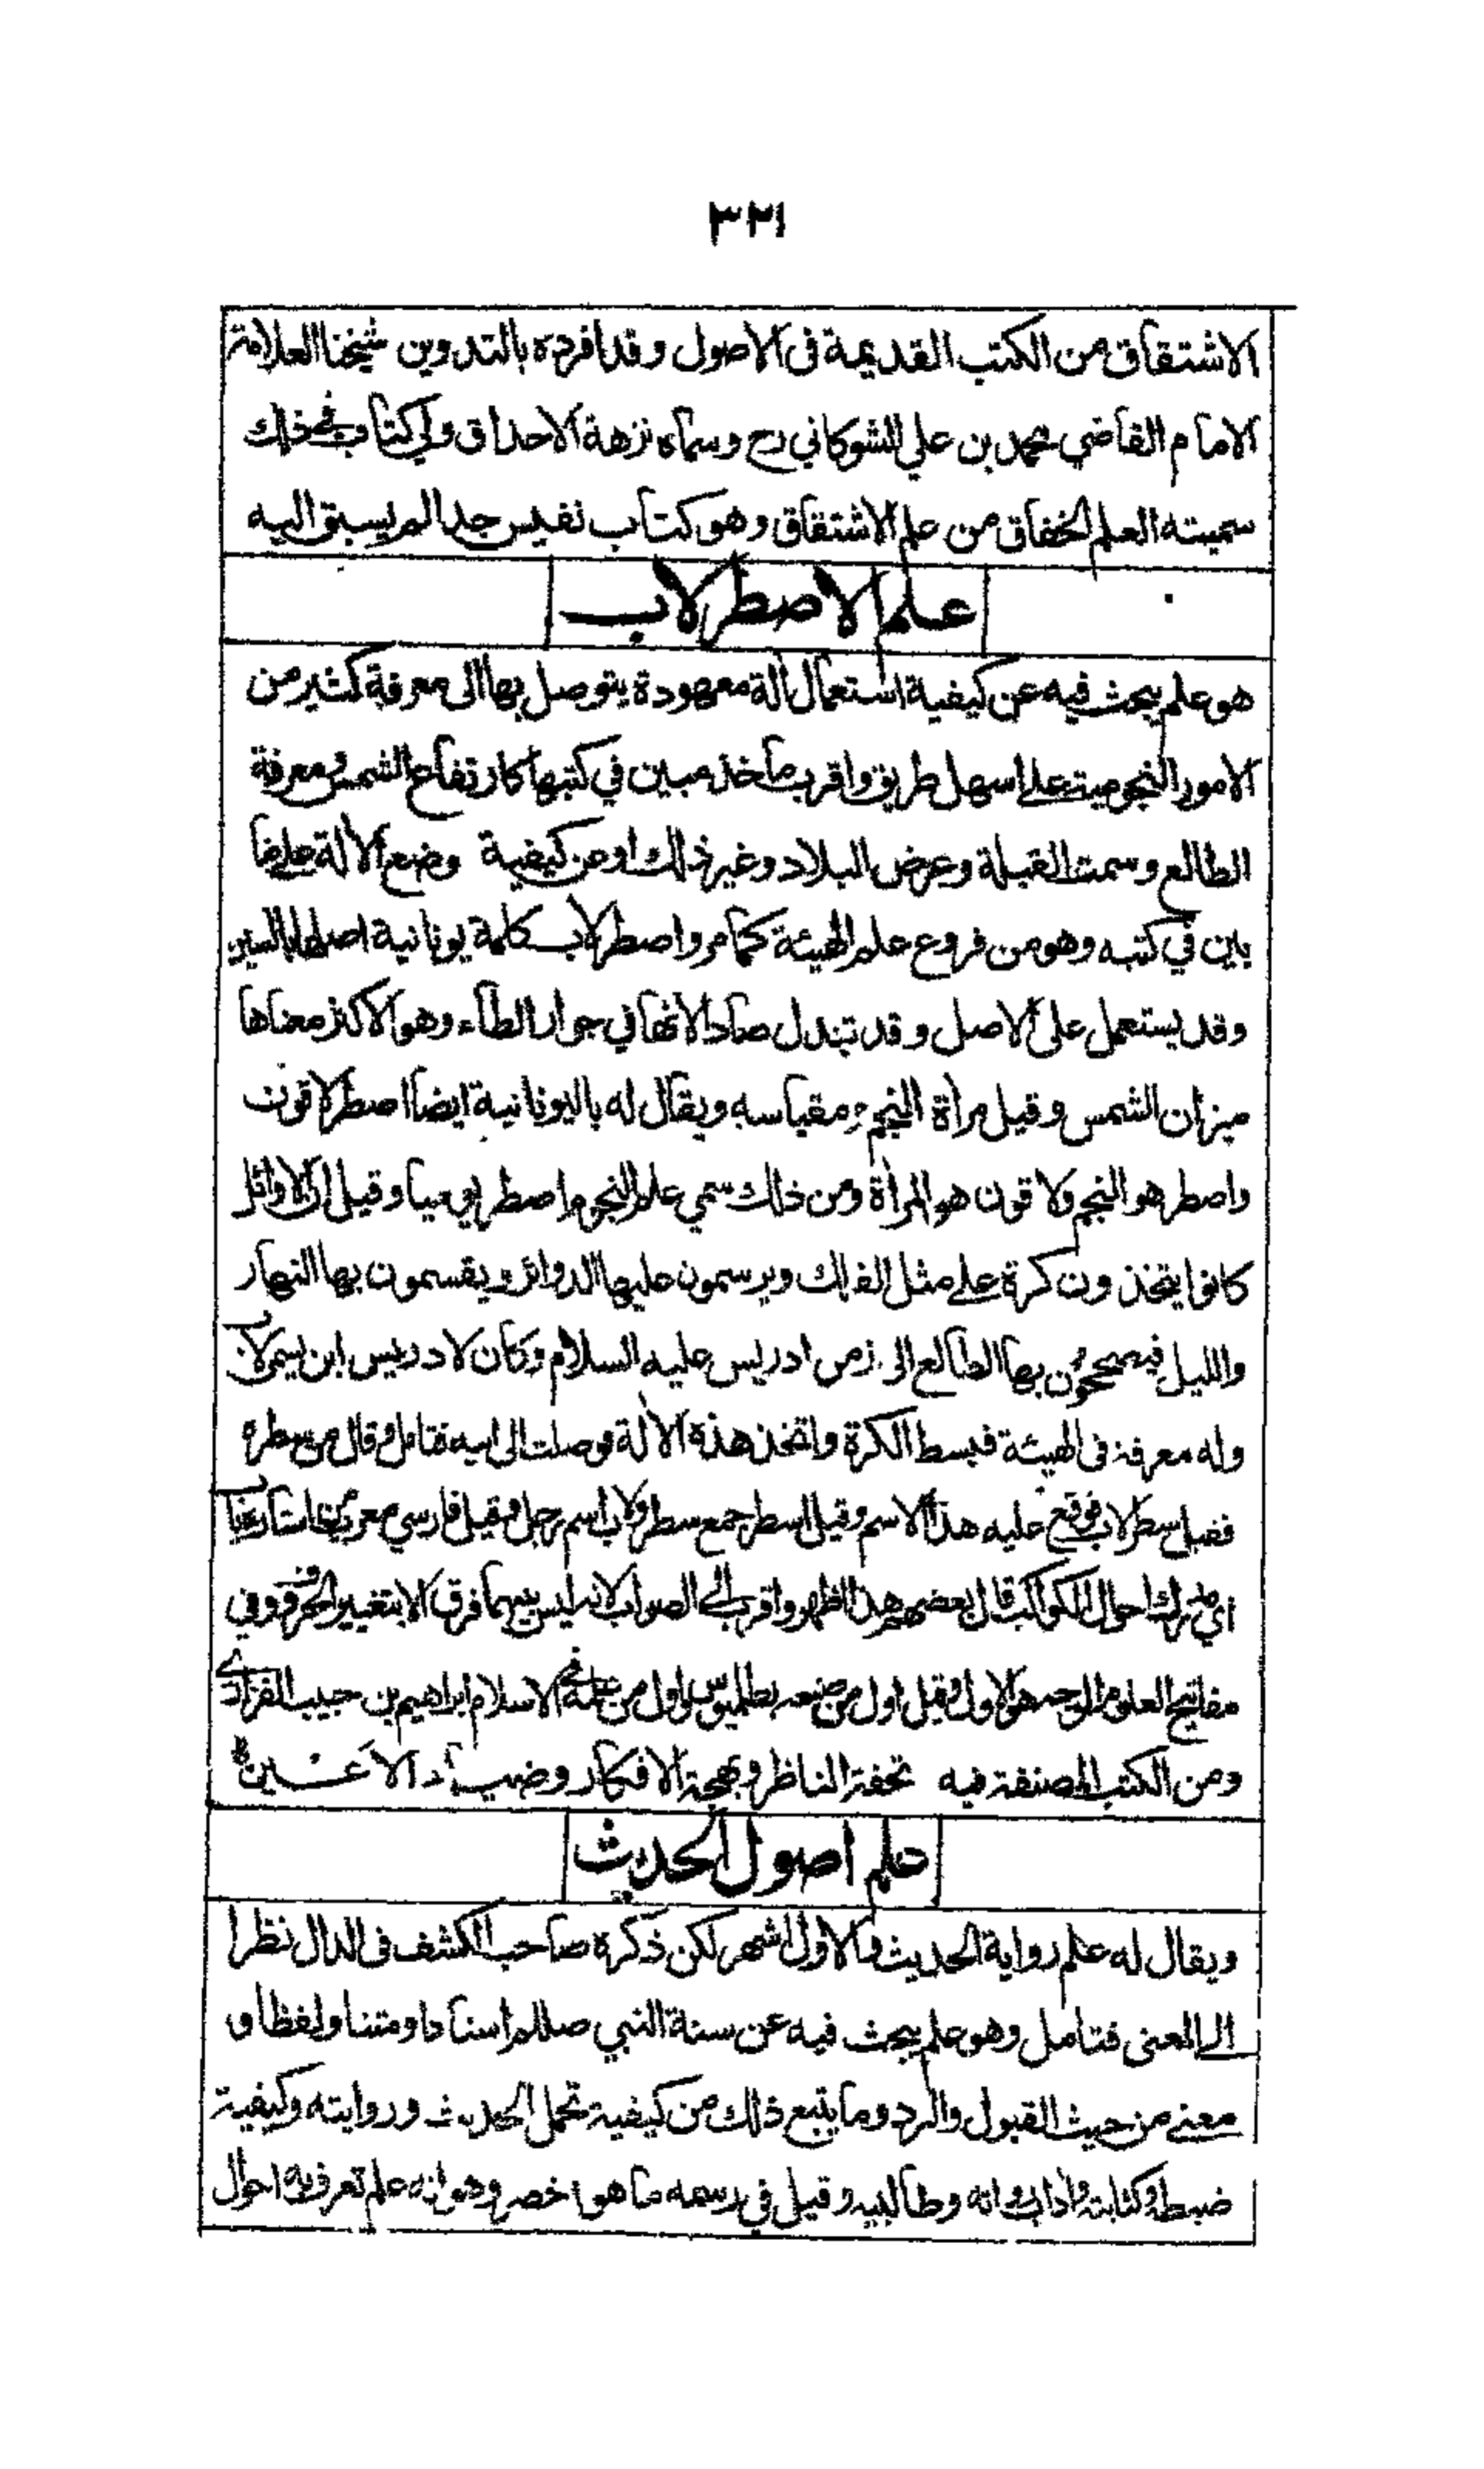 ٣٢١
الاشتقاق من الكتب القديمة فى الاصول وقد افرده بالتدوين شيخنا العلامة
الامام القاضي محمد بن علي الشوكاني رح وسماه نزهة الاحداق ولي كتاب في ذلك
سميته العلم الخفاق من علم الاشتقاق وهو كتاب نفيس جدا لم يسبق اليه
علم الاصطرلاب
هو علم يبحث فيه عن كيفية استعمال آلة معهودة يتوصل بها الى معرفة كثير من
الامور النجومية على اسهل طريق واقرب مأخذ مبين في كتبها كارتفاع الشمس ومعرفة
الطالع وسمت القبلة وعرض البلاد وغير ذلك او عن كيفية وضع الآلة على ما
بين في كتبه وهو من فروع علم الهيئة كما مر واصطرلاب كلمة يونانية اصلها بالسين
وقد يستعمل على الاصل وقد تبدل صادا لانها في جوار الطاء وهو الاكثر معناها
ميزان الشمس وقيل مرأة النجم ومقياسه ويقال له باليونانية ايضا اصطرلاقون
واصطر هو النجم ولاقون هو المرأة ومن ذلك سمي علم النجوم اصطريوميا وقيل ان الاوائل
كانوا يتخذون كرة على مثل الفلك ويرسمون عليها الدوائر ويقسمون بها النهار
والليل فيصححون بها الطالع الى زمن ادريس عليه السلام وكان لادريس ابن يسمى لاب
وله معرفة فى الهيئة فبسط الكرة واتخذ هذه الآلة فوصلت الى ابيه فتامل وقال من سطره
فقيل سطرلاب فوقع عليه هذا الاسم وقيل اسطر جمع سطر ولاب اسم رجل وقيل فارسي معرب من استاره ياب
اي مدرك احوال الكواكب قال بعضهم هذا اظهر واقرب الى الصواب لانه ليس بينهما فرق الا بتغيير الحروف وفي
مفاتيح العلوم الوجه هو الاول وقيل اول من صنعه بطلميوس واول من عمله في الاسلام ابراهيم بن حبيب الفزاري
ومن الكتب المصنفة فيه تحفة الناظر وبهجة الافكار وضياء الاعين
علم اصول الحديث
ويقال له علم رواية الحديث والاول اشهر لكن ذكره صاحب الكشف فى الدال نظرا
الى المعنى فتامل وهو علم يبحث فيه عن سنة النبي صللم اسنادا ومتنا ولفظا و
معنى من حيث القبول والرد وما يتبع ذلك من كيفية تحمل الحديث وروايته وكيفية
ضبطه وكتابته وآداب رواته وطالبيه وقيل في رسمه ما هو اخصر وهو انه علم تعرف به احوال